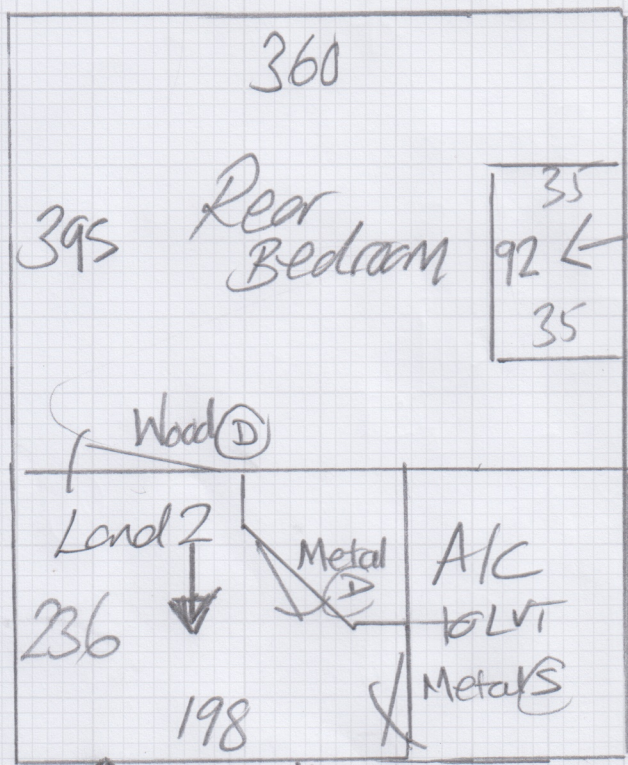 360
395
Rear
Bedroom
35
92
35
Wood D
Land 2
Metal
D
A/C
to LVT
Metal S
236
198